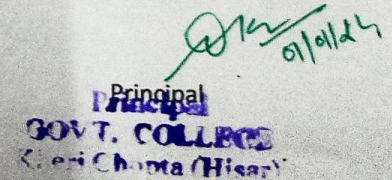 01/01/24
Principal
Principal
GOVT. COLLEGE
Chopta (Hisar)